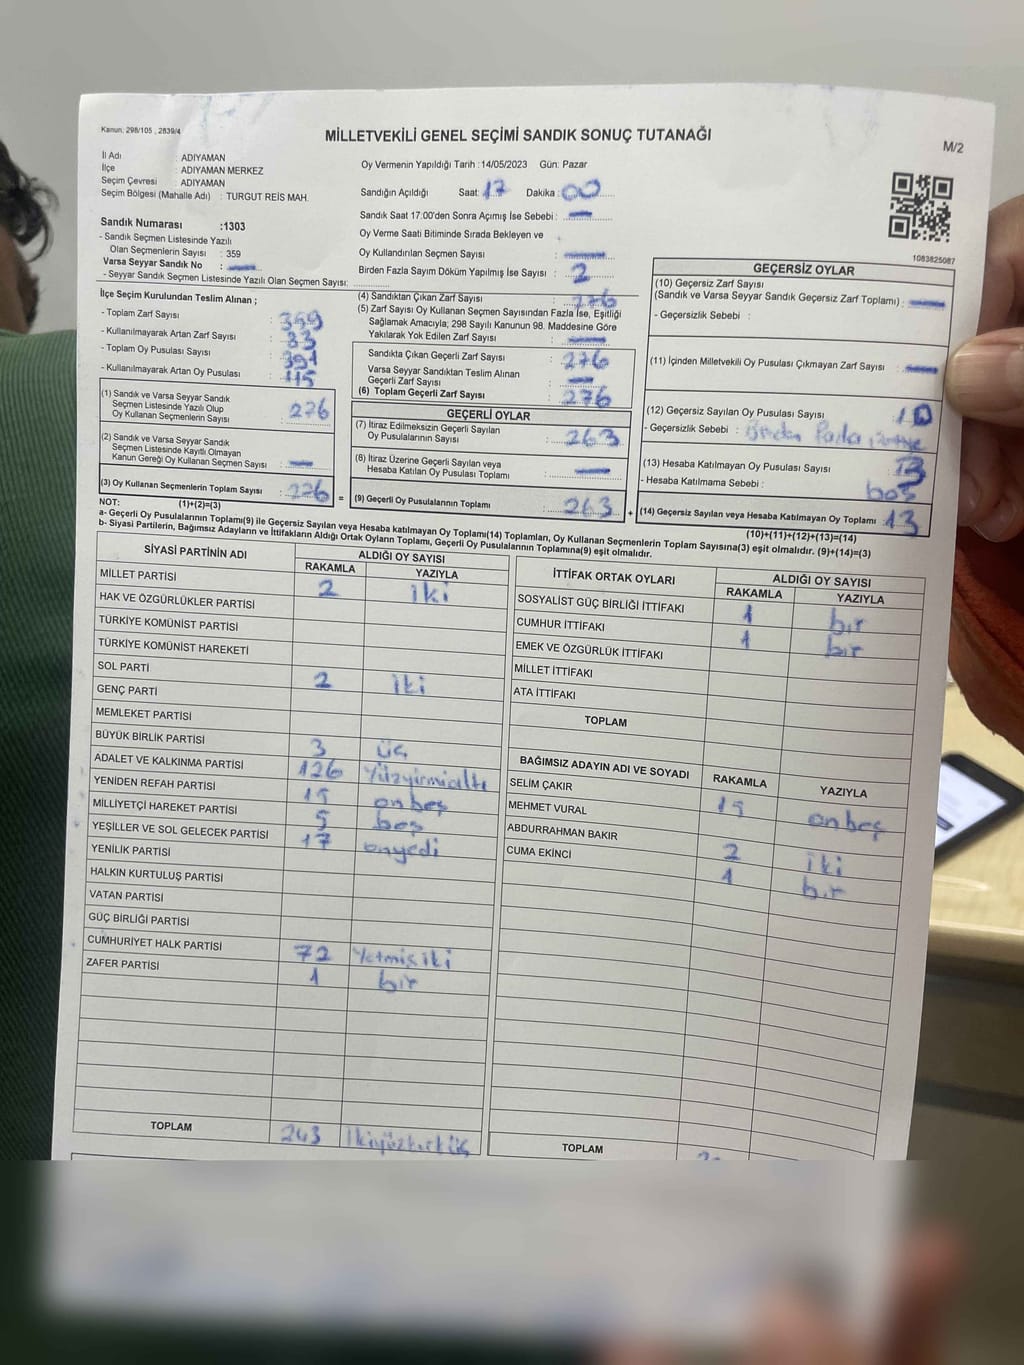 Kanun: 298/105 , 2839/4
MİLLETVEKİLİ GENEL SEÇİMİ SANDIK SONUÇ TUTANAĞI
M/2
İl Adı : ADIYAMAN
İlçe : ADIYAMAN MERKEZ
Seçim Çevresi : ADIYAMAN
Seçim Bölgesi (Mahalle Adı) : TURGUT REİS MAH.
Oy Vermenin Yapıldığı Tarih : 14/05/2023 Gün: Pazar
Sandığın Açıldığı Saat: 17 Dakika: 00
Sandık Saat 17:00'den Sonra Açımış İse Sebebi : —
Oy Verme Saati Bitiminde Sırada Bekleyen ve
Oy Kullandırılan Seçmen Sayısı : —
Birden Fazla Sayım Döküm Yapılmış İse Sayısı : 2
1083825087
Sandık Numarası :1303
- Sandık Seçmen Listesinde Yazılı
Olan Seçmenlerin Sayısı : 359
Varsa Seyyar Sandık No : —
- Seyyar Sandık Seçmen Listesinde Yazılı Olan Seçmen Sayısı:
İlçe Seçim Kurulundan Teslim Alınan ;
- Toplam Zarf Sayısı :
- Kullanılmayarak Artan Zarf Sayısı :
- Toplam Oy Pusulası Sayısı : 391
- Kullanılmayarak Artan Oy Pusulası : 115
(1) Sandık ve Varsa Seyyar Sandık
Seçmen Listesinde Yazılı Olup
Oy Kullanan Seçmenlerin Sayısı : 276
(2) Sandık ve Varsa Seyyar Sandık
Seçmen Listesinde Kayıtlı Olmayan
Kanun Gereği Oy Kullanan Seçmen Sayısı : —
(3) Oy Kullanan Seçmenlerin Toplam Sayısı : 276 =
(4) Sandıktan Çıkan Zarf Sayısı : 276
(5) Zarf Sayısı Oy Kullanan Seçmen Sayısından Fazla İse, Eşitliği
Sağlamak Amacıyla; 298 Sayılı Kanunun 98. Maddesine Göre
Yakılarak Yok Edilen Zarf Sayısı : —
Sandıkta Çıkan Geçerli Zarf Sayısı : 276
Varsa Seyyar Sandıktan Teslim Alınan
Geçerli Zarf Sayısı : —
(6) Toplam Geçerli Zarf Sayısı : 276
GEÇERLİ OYLAR
(7) İtiraz Edilmeksizin Geçerli Sayılan
Oy Pusulalarının Sayısı : 263
(8) İtiraz Üzerine Geçerli Sayılan veya
Hesaba Katılan Oy Pusulası Toplamı : —
(9) Geçerli Oy Pusulalarının Toplamı : 263 +
GEÇERSİZ OYLAR
(10) Geçersiz Zarf Sayısı
(Sandık ve Varsa Seyyar Sandık Geçersiz Zarf Toplamı) : —
- Geçersizlik Sebebi :
(11) İçinden Milletvekili Oy Pusulası Çıkmayan Zarf Sayısı : —
(12) Geçersiz Sayılan Oy Pusulası Sayısı : 10
- Geçersizlik Sebebi : Birden Fazla
(13) Hesaba Katılmayan Oy Pusulası Sayısı :
- Hesaba Katılmama Sebebi : boş
(14) Geçersiz Sayılan veya Hesaba Katılmayan Oy Toplamı : 13
NOT: (1)+(2)=(3)
(10)+(11)+(12)+(13)=(14)
a- Geçerli Oy Pusulalarının Toplamı(9) ile Geçersiz Sayılan veya Hesaba katılmayan Oy Toplamı(14) Toplamları, Oy Kullanan Seçmenlerin Toplam Sayısına(3) eşit olmalıdır. (9)+(14)=(3)
b- Siyasi Partilerin, Bağımsız Adayların ve İttifakların Aldığı Ortak Oyların Toplamı, Geçerli Oy Pusulalarının Toplamına(9) eşit olmalıdır.
SİYASİ PARTİNİN ADI ALDIĞI OY SAYISI
RAKAMLA YAZIYLA
MİLLET PARTİSİ 2 iki
HAK VE ÖZGÜRLÜKLER PARTİSİ
TÜRKİYE KOMÜNİST PARTİSİ
TÜRKİYE KOMÜNİST HAREKETİ
SOL PARTİ 2 iki
GENÇ PARTİ
MEMLEKET PARTİSİ
BÜYÜK BİRLİK PARTİSİ 3 üç
ADALET VE KALKINMA PARTİSİ 126 Yüzyirmialtı
YENİDEN REFAH PARTİSİ 15 onbeş
MİLLİYETÇİ HAREKET PARTİSİ 5 beş
YEŞİLLER VE SOL GELECEK PARTİSİ 17 onyedi
YENİLİK PARTİSİ
HALKIN KURTULUŞ PARTİSİ
VATAN PARTİSİ
GÜÇ BİRLİĞİ PARTİSİ
CUMHURİYET HALK PARTİSİ 72 Yetmişiki
ZAFER PARTİSİ 1 bir
TOPLAM 243 ikiyüzkırküç
İTTİFAK ORTAK OYLARI ALDIĞI OY SAYISI
RAKAMLA YAZIYLA
SOSYALİST GÜÇ BİRLİĞİ İTTİFAKI 1 bir
CUMHUR İTTİFAKI 1 bir
EMEK VE ÖZGÜRLÜK İTTİFAKI
MİLLET İTTİFAKI
ATA İTTİFAKI
TOPLAM
BAĞIMSIZ ADAYIN ADI VE SOYADI RAKAMLA YAZIYLA
SELİM ÇAKIR 15 onbeş
MEHMET VURAL
ABDURRAHMAN BAKIR 2 iki
CUMA EKİNCİ 1 bir
TOPLAM